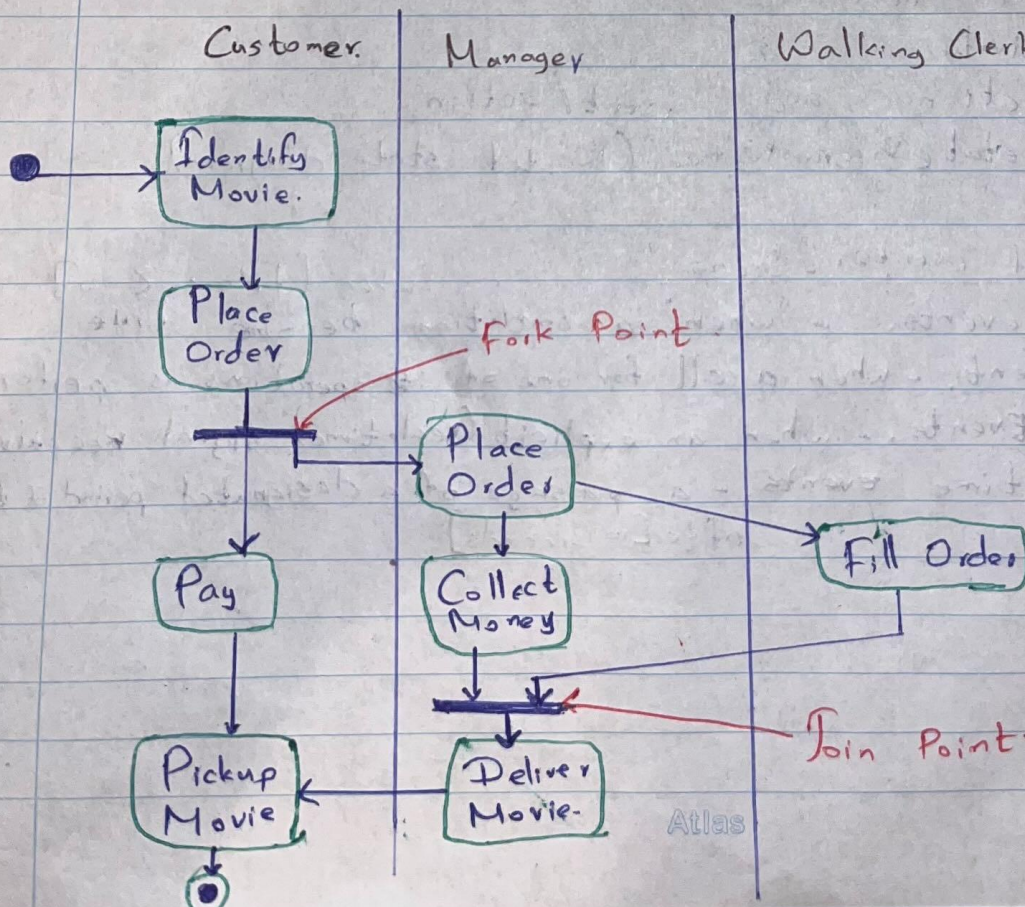 Customer.
Manager
Walking Cler
Identify
Movie.
Place
Order
Fork Point
Place
Order
Fill Order
Pay
Collect
Money
Join Point
Pickup
Movie
Deliver
Movie.
Atlas